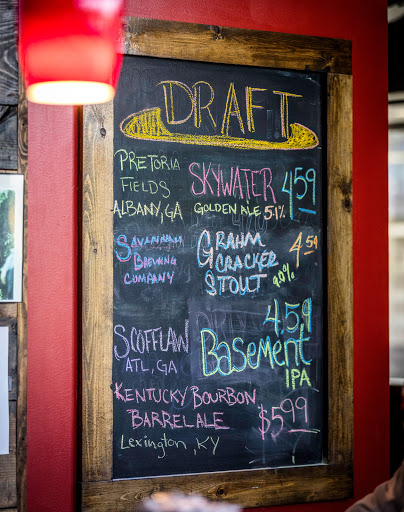 DRAFT
PRETORIA FIELDS
ALBANY, GA
SKYWATER 4.59
GOLDEN ALE 5.1%
SAVANNAH BREWING COMPANY
GRAHM CRACKER STOUT 4.59
9.0%
SCOFFLAW
ATL, GA
4.59
BASEMENT
IPA
KENTUCKY BOURBON
BARREL ALE
$5.99
Lexington, KY